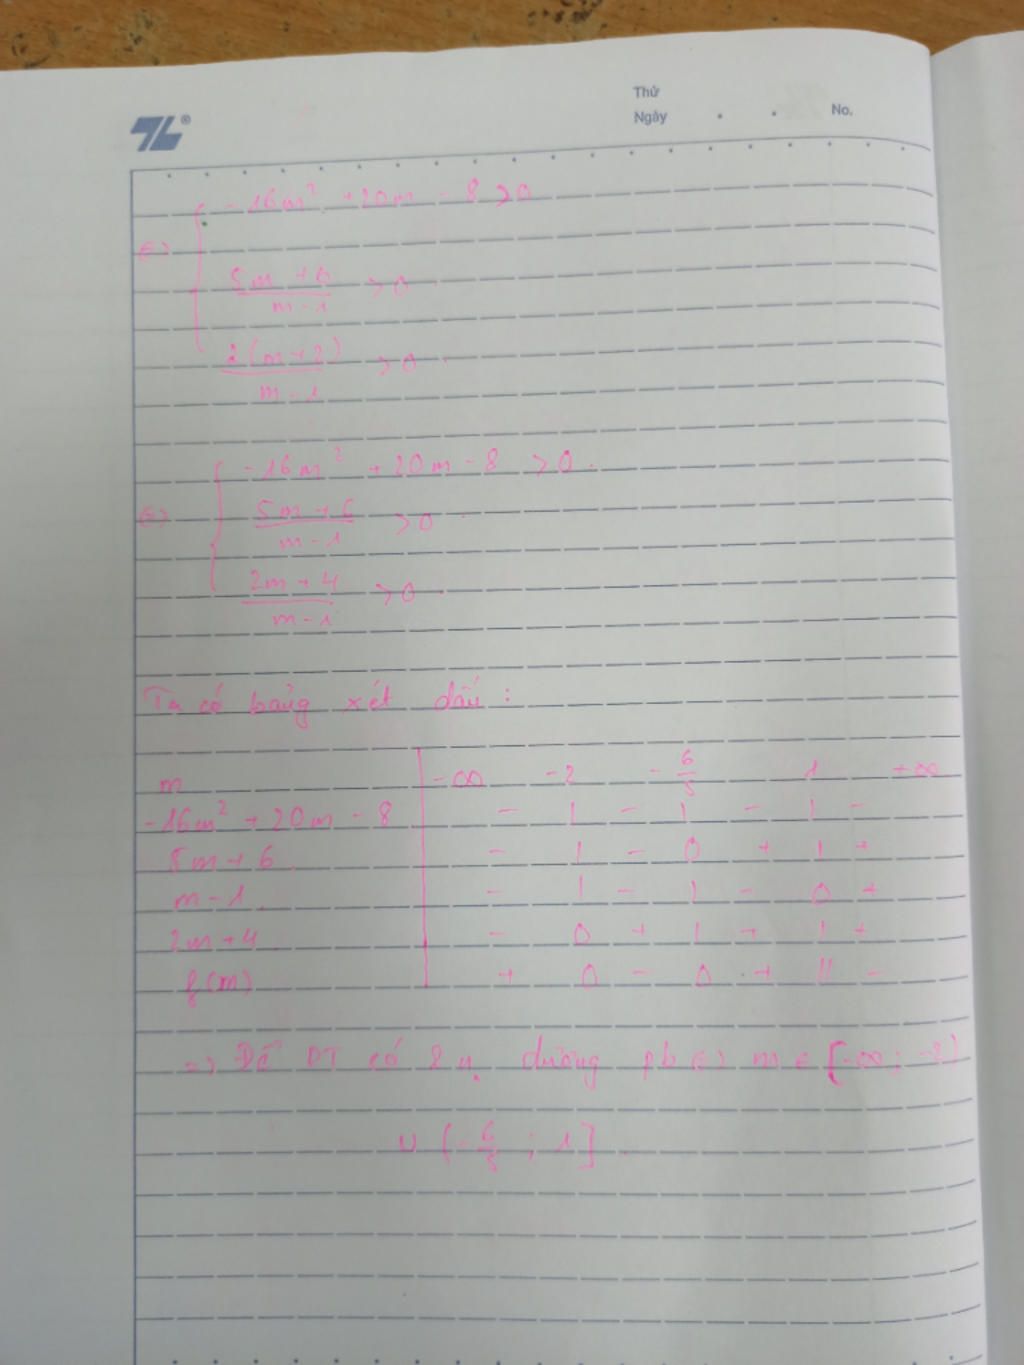 Thứ
Ngày . . No.
-16m² + 20m - 8 > 0
⇔
5m + 6 / m - 1 > 0
2(m + 2) / m - 1 > 0
-16m² + 20m - 8 > 0.
⇔ 5m + 6 / m - 1 > 0.
2m + 4 / m - 1 > 0.
Ta có bảng xét dấu :
m -∞ -2 -6/5 1 +∞
-16m² + 20m - 8 - | - | - | -
5m + 6. - | - 0 + | +
m - 1. - | - | - 0 +
2m + 4. - 0 + | + | +
f(m) + 0 - 0 + || -
=> Để PT có 2 n. dương pb ⇔ m ∈ [-∞; -2)
∪ (-6/5 ; 1].